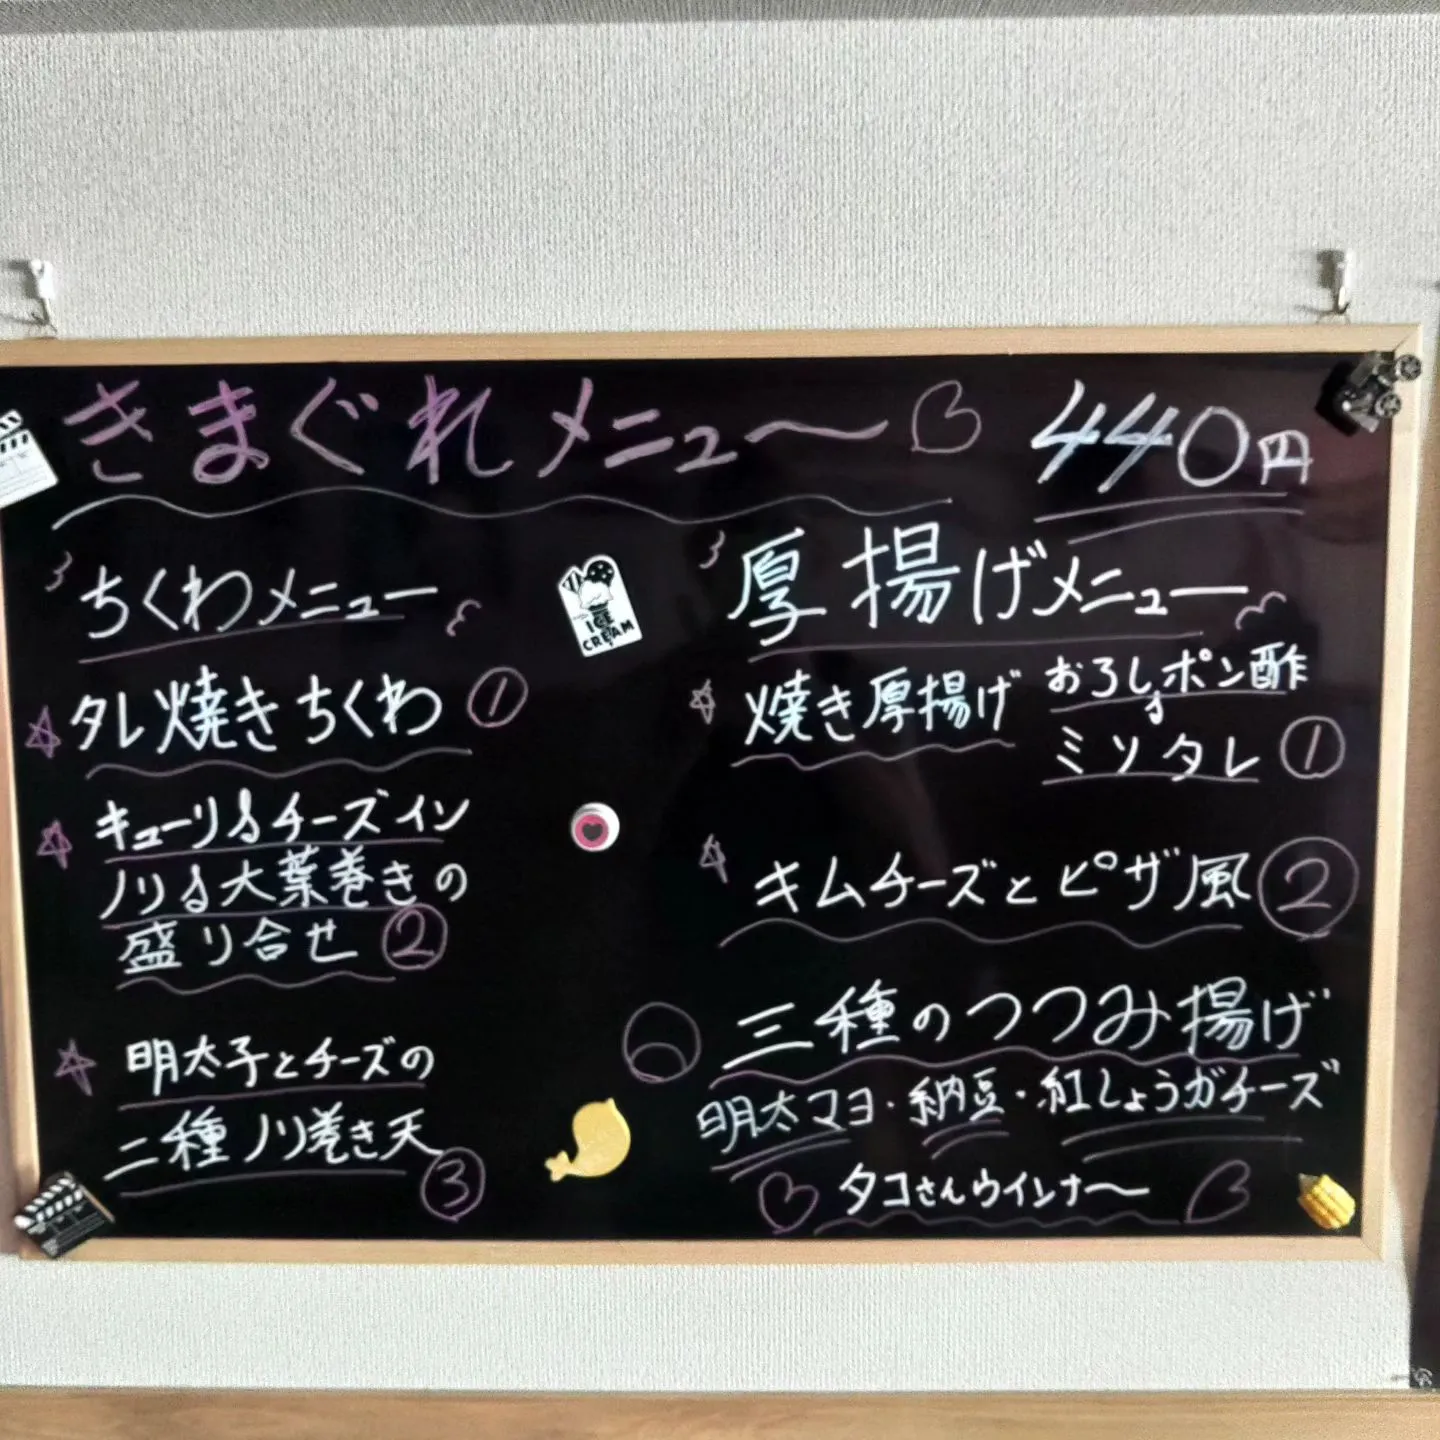 きまぐれメニュ〜
440円
ちくわメニュー
タレ焼きちくわ ①
キューリ&チーズイン
ノリ&大葉巻きの
盛り合せ ②
明太子とチーズの
二種ノリ巻き天
③
ICE
CREAM
厚揚げメニュー
焼き厚揚げ おろしポン酢
&
ミソタレ ①
キムチーズとピザ風 ②
三種のつつみ揚げ
明太マヨ・納豆・紅しょうガチーズ
タコさんウインナ〜